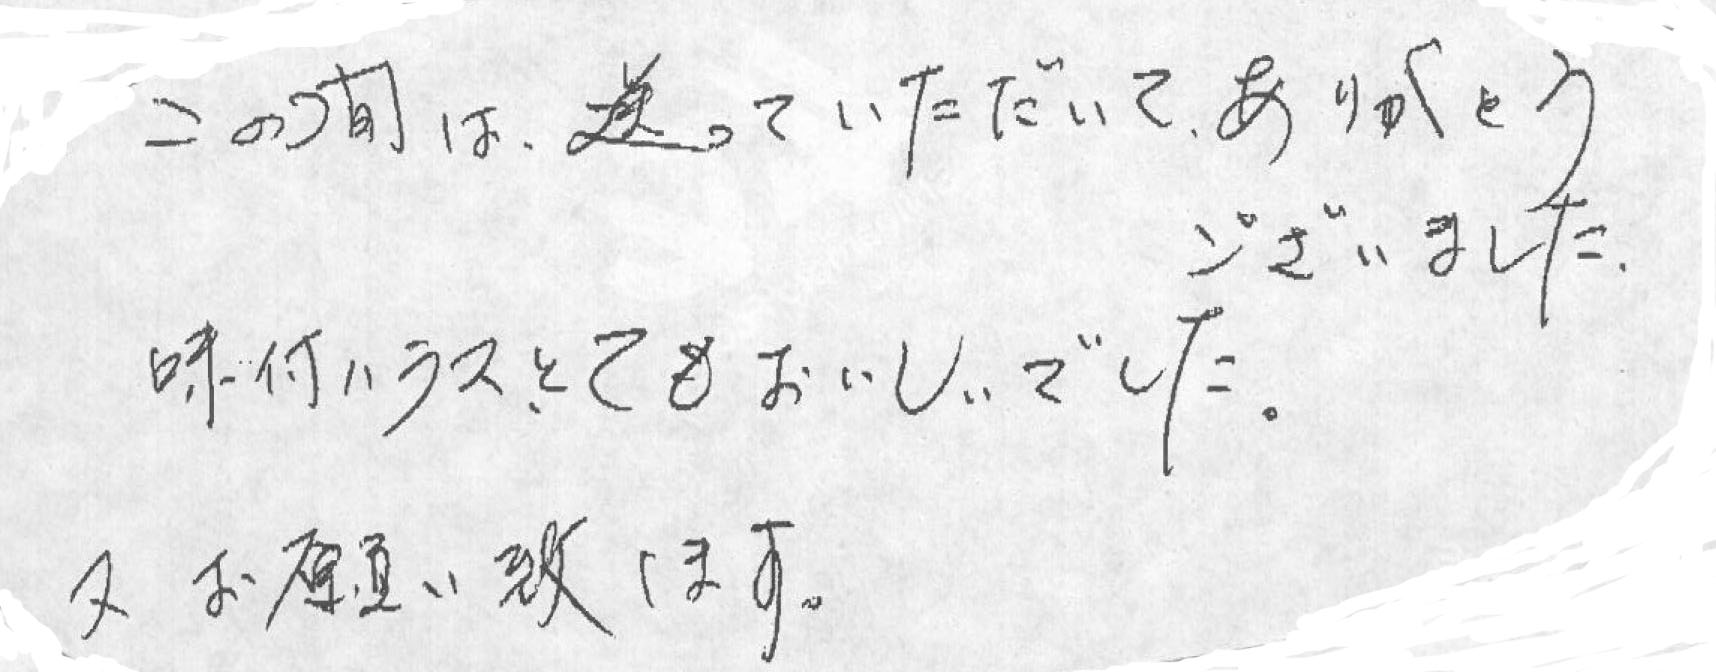 この間は、送っていただいて、ありがとう
ございました。
味付ハラスとてもおいしいでした。
又お願い致します。